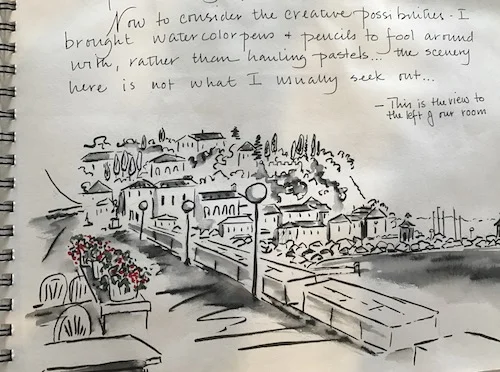 Now to consider the creative possibilities. I
brought watercolor pens + pencils to fool around
with, rather than hauling pastels... the scenery
here is not what I usually seek out...
— This is the view to
the left of our room